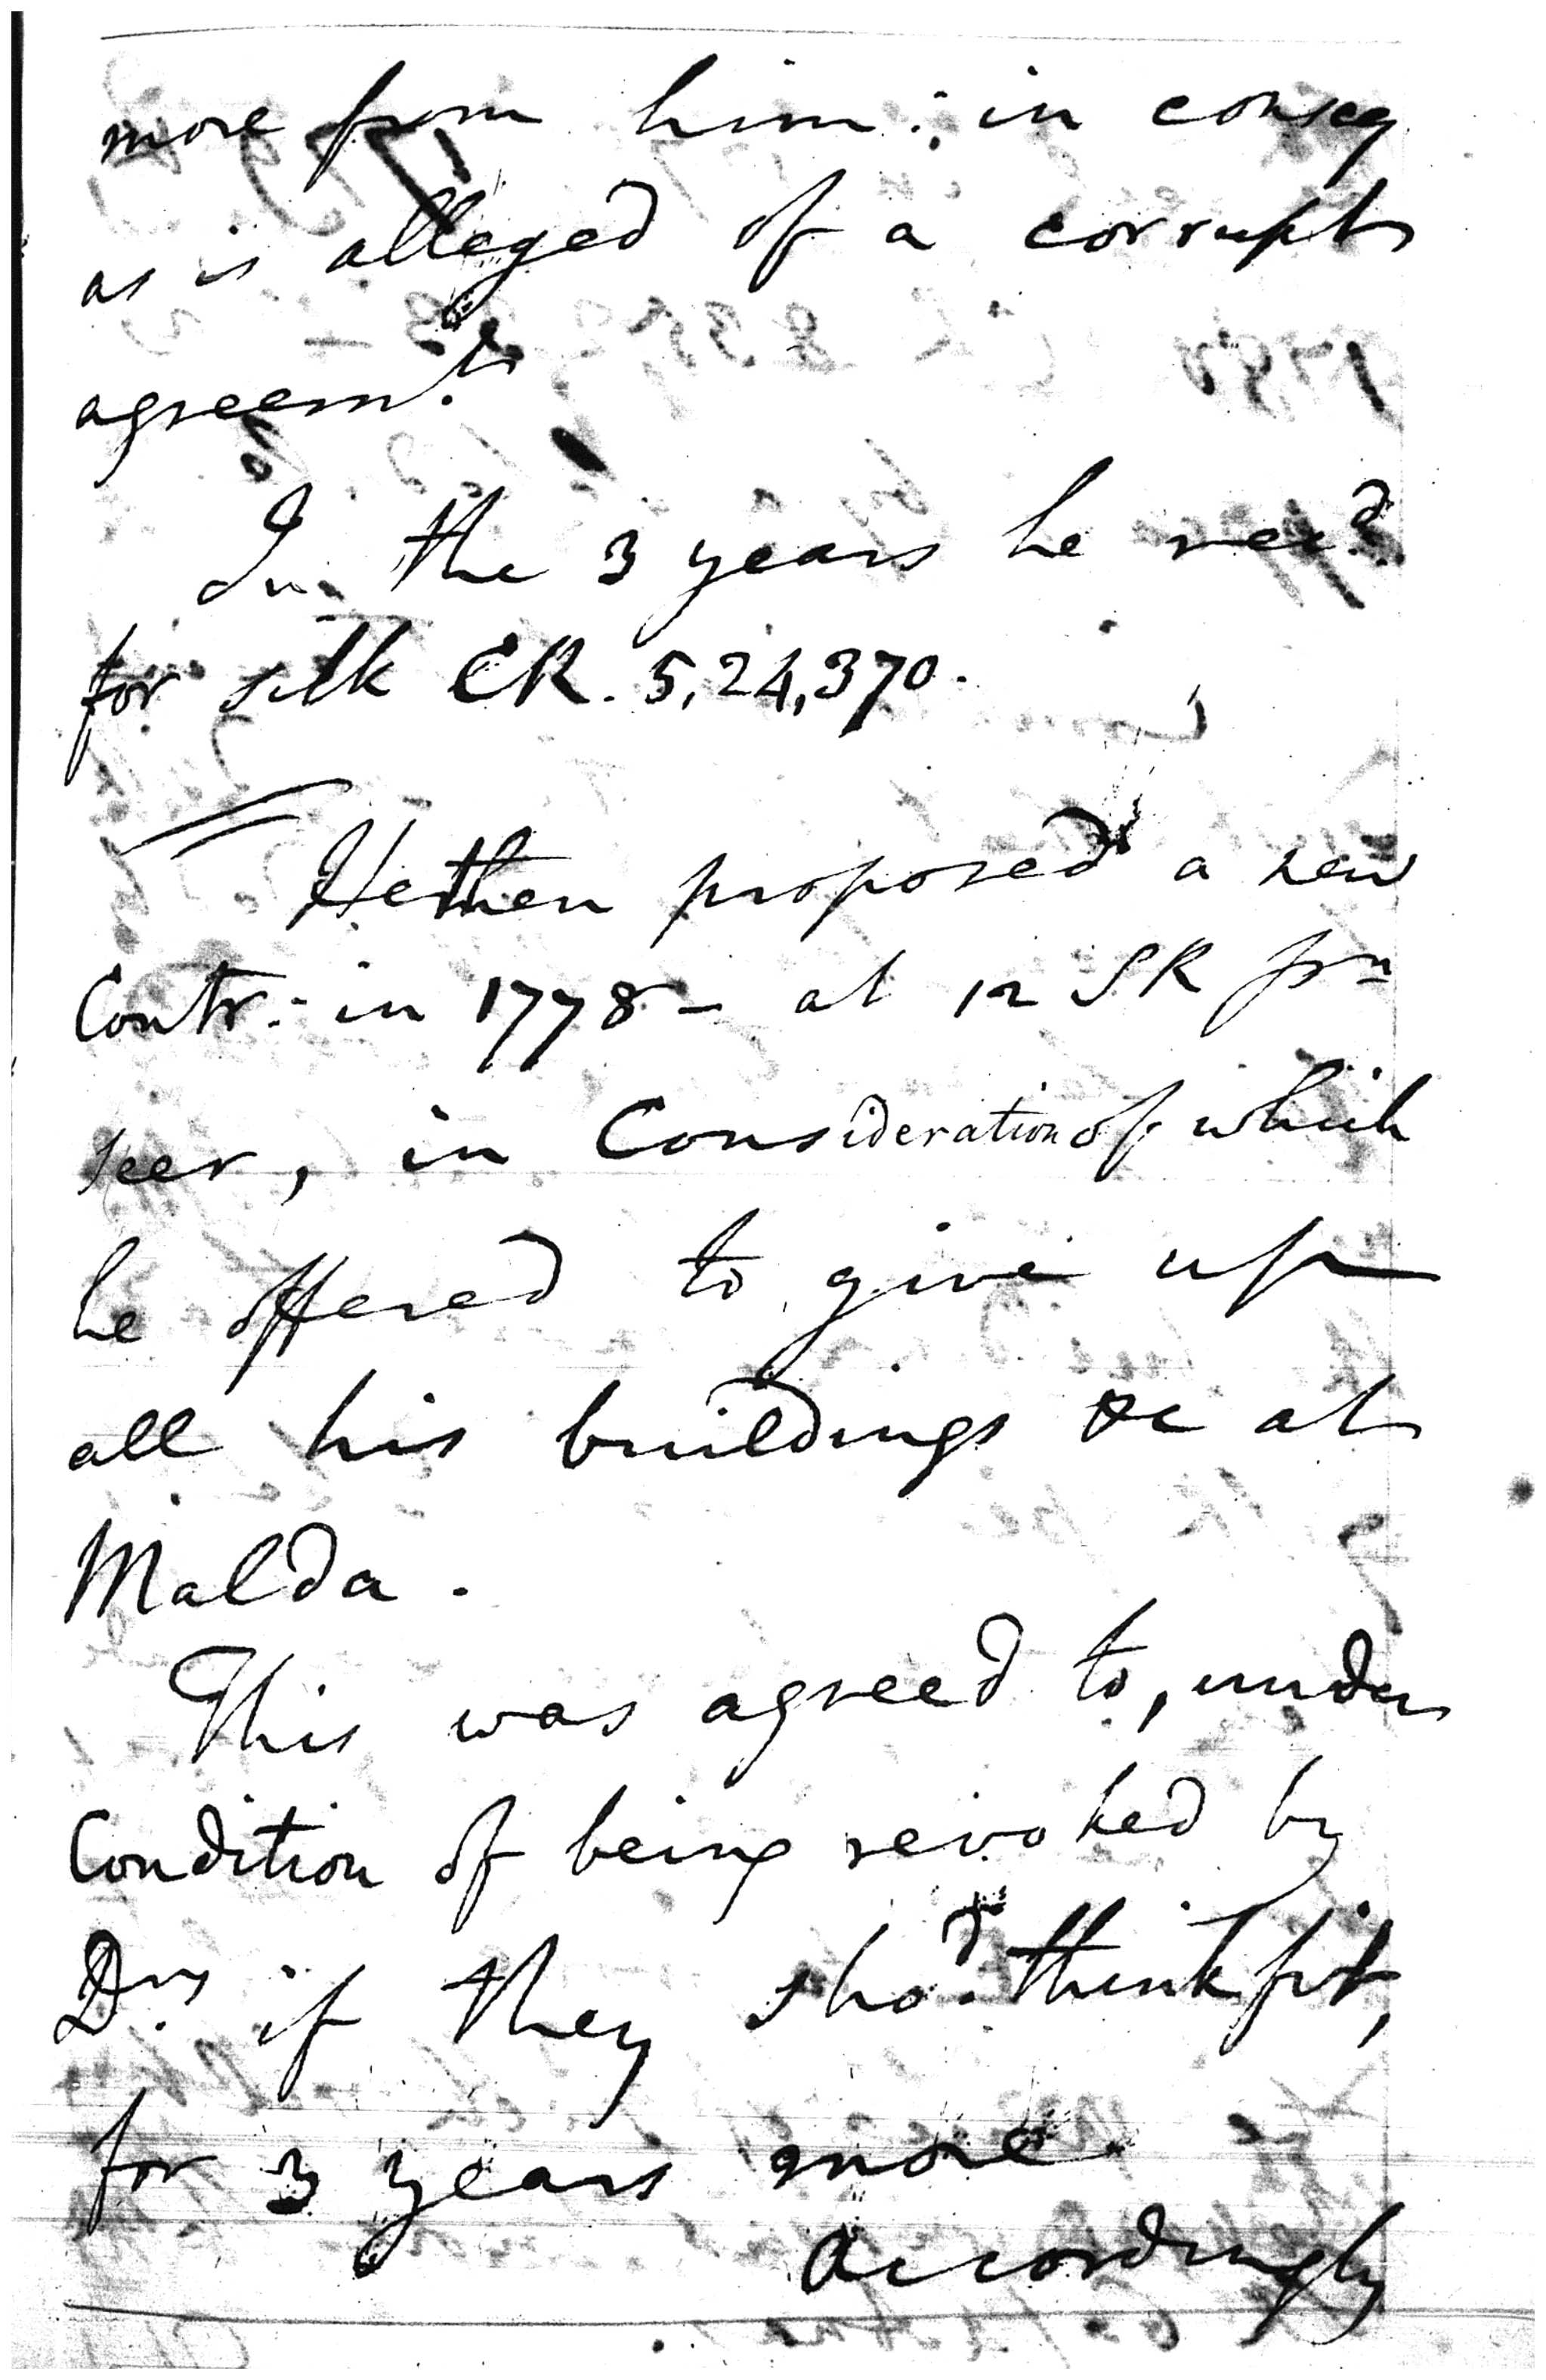 more from him: in conseq
as is alleged of a corrupt
agreem.t
In the 3 years he rec.d
for silk CR. 5,24,370.
He then proposed a new
Contr: in 1778 - at 12 SR
seer, in Consideration of which
he offered to give up
all his buildings &c at
Malda.
This was agreed to, under
Condition of being revoked by
D.rs if they sho.d think fit,
for 3 years more
Accordingly